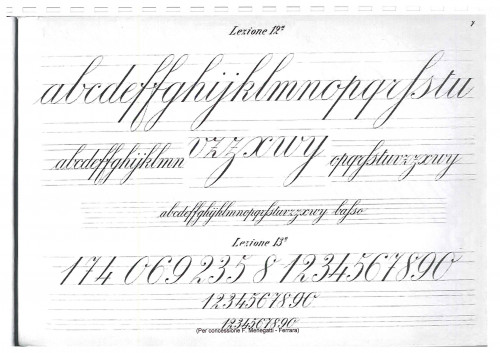 Lezione 12ª
7
abcdeffghijklmnopqrfsstu
abcdeffghijklmn vzzxwy opqrfssturvzzxwy
abcdeffghijklmnopqrfssturvzzxwy basso
Lezione 13ª
174 069 235 8 1234567890
1234567890
1234567890
(Per concessione F. Menegatti - Ferrara)